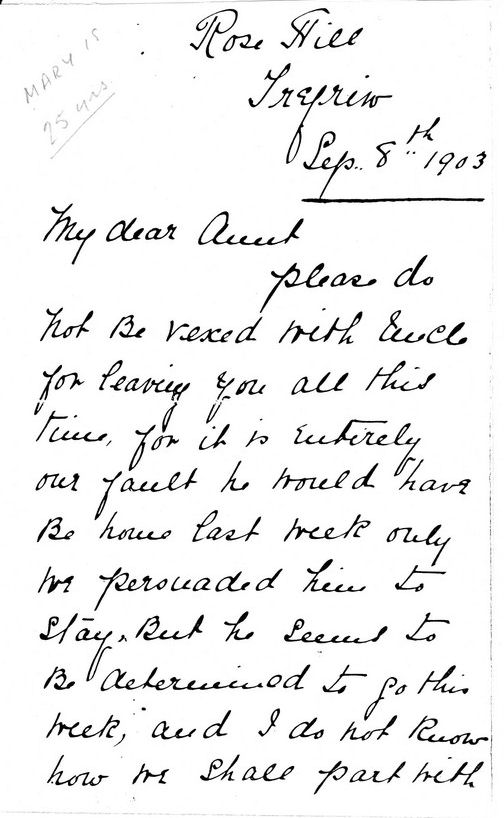 MARY IS
25 yrs.
Rose Hill
Trefriw
Sep. 8th 1903
My dear Aunt
please do
not Be vexed with Uncle
for leaving you all this
time, for it is entirely
our fault he would have
Be home last week only
we persuaded him to
stay. But he seems to
Be determined to go this
week, and I do not know
how we shall part with